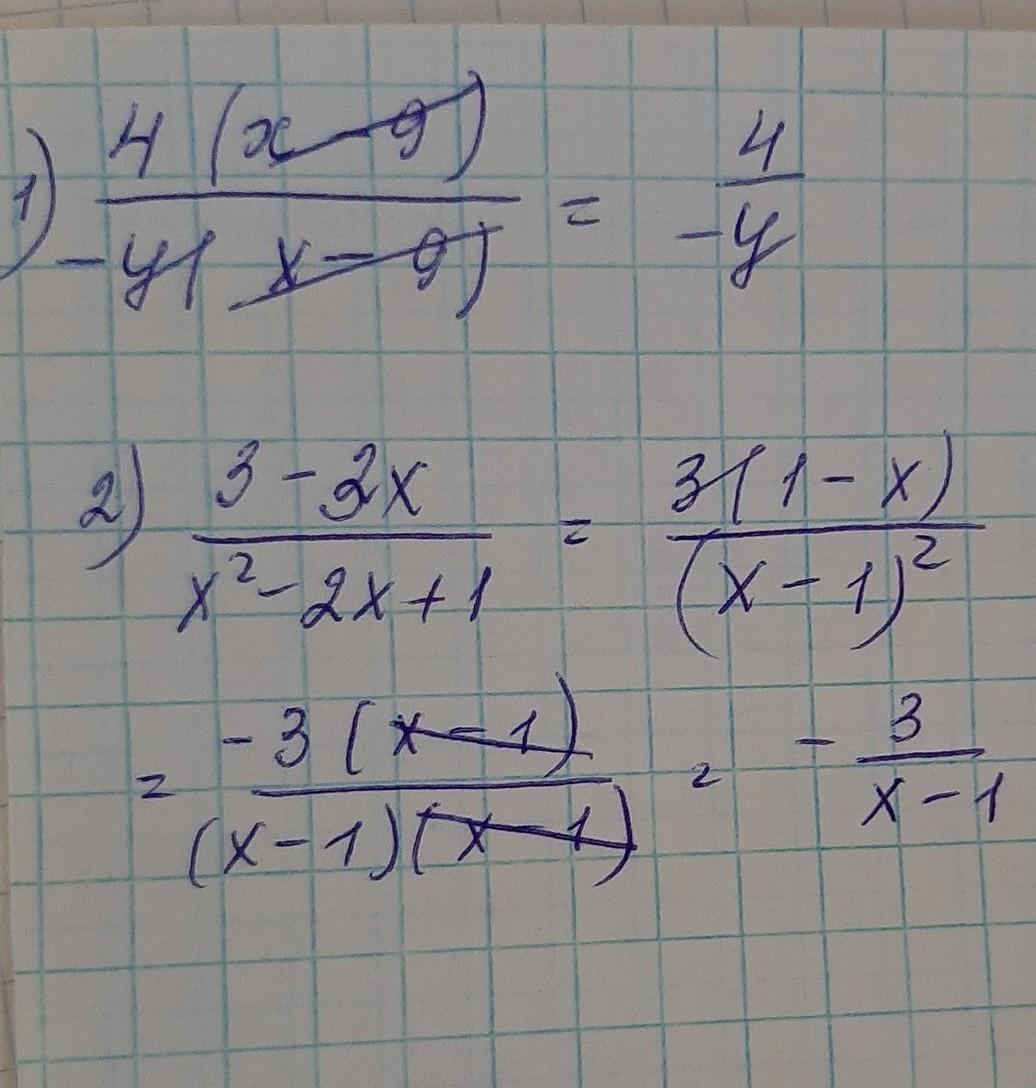 1) 4 (x - 9) / -y( x - 9) = 4 / -y
2) 3 - 3x / x² - 2x + 1 = 3(1 - x) / (x - 1)²
= -3 (x - 1) / (x - 1)(x - 1) = - 3 / x - 1